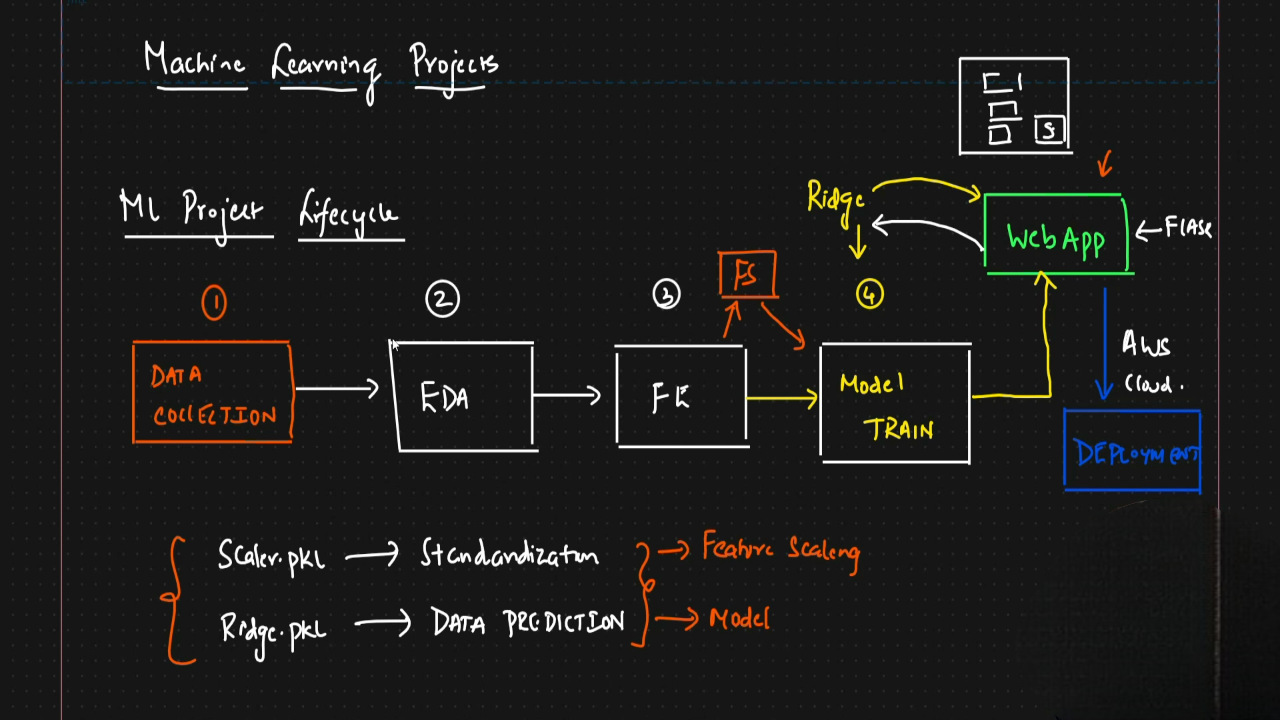 Machine Learning Projects
S
Ridge
ML Project Lifecycle
WebApp
← Flask
FS
① ② ③ ④
DATA COLLECTION → EDA → FE → Model TRAIN
AWS Cloud.
DEPLOYMENT
Scaler.pkl → Standardization → Feature Scaling
Ridge.pkl → DATA PREDICTION → Model